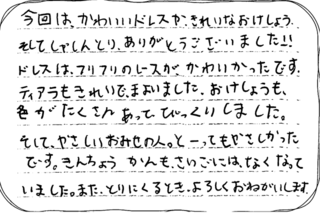 今回は、かわいいドレスや、きれいなおけしょう
そしてしゃしんとり、ありがとうございました!!
ドレスは、フリフリのレースが、かわいかったです。
ティアラもきれいで、まよいました。おけしょうも、
色がたくさんあってびっくりしました。
そして、やさしいおみせの人。と〜ってもやさしかった
です。きんちょうかんも、さいごには、なくなって
いました。また、とりにくるとき、よろしくおねがいします